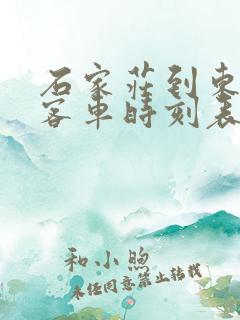 石家莊到東
客車時刻表
和小煦
未经同意禁止转载